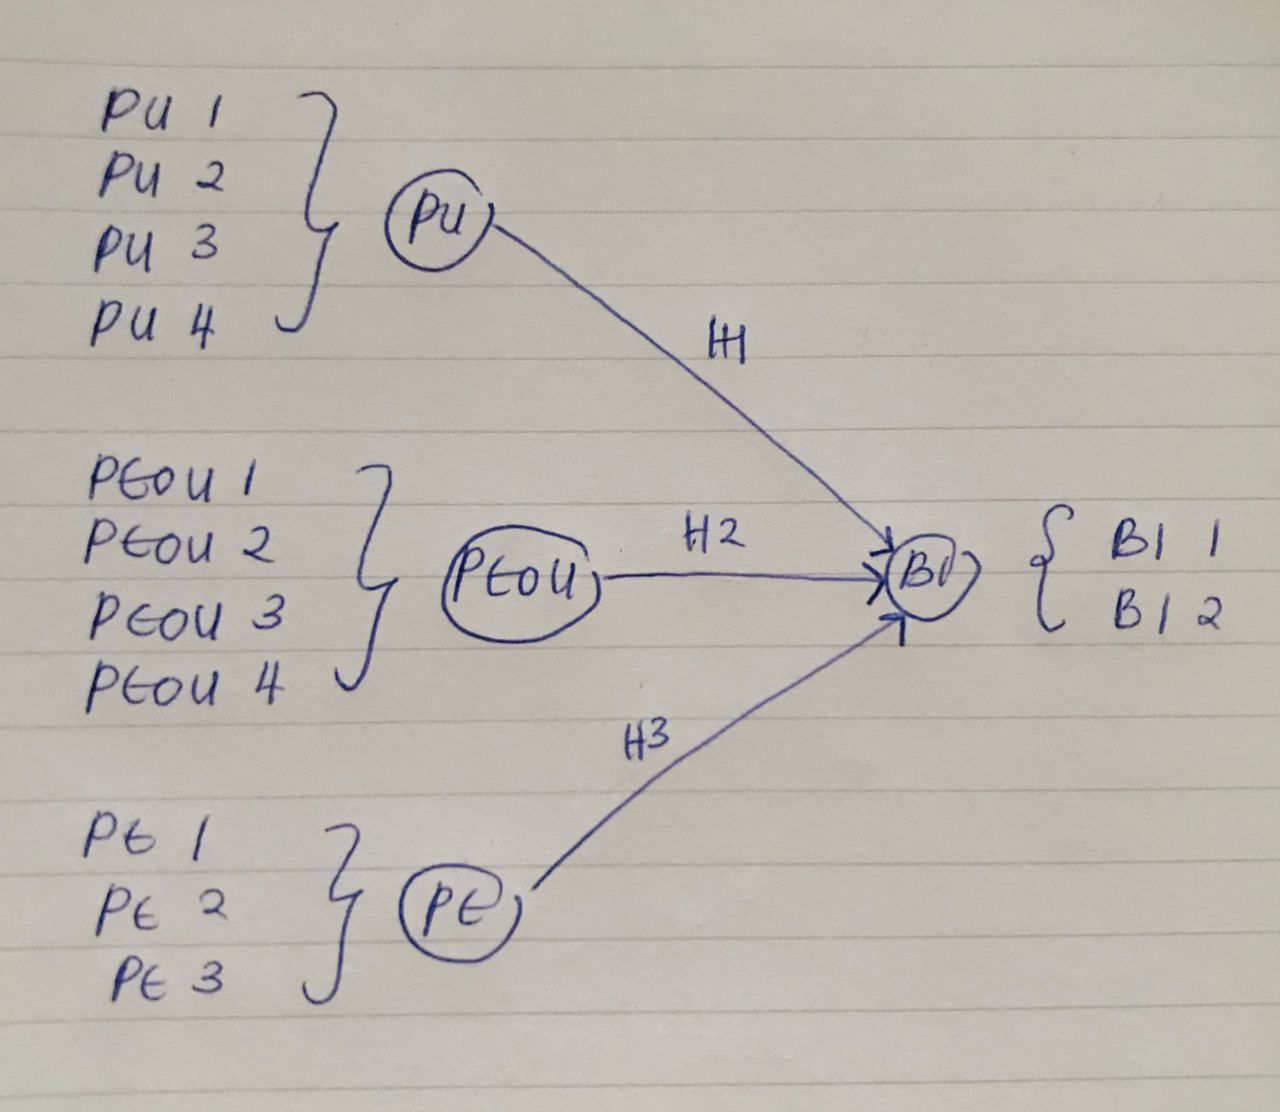 PU 1
PU 2
PU 3
PU 4
PU
H1
PEOU 1
PEOU 2
PEOU 3
PEOU 4
PEOU
H2
BI
BI 1
BI 2
H3
PE 1
PE 2
PE 3
PE